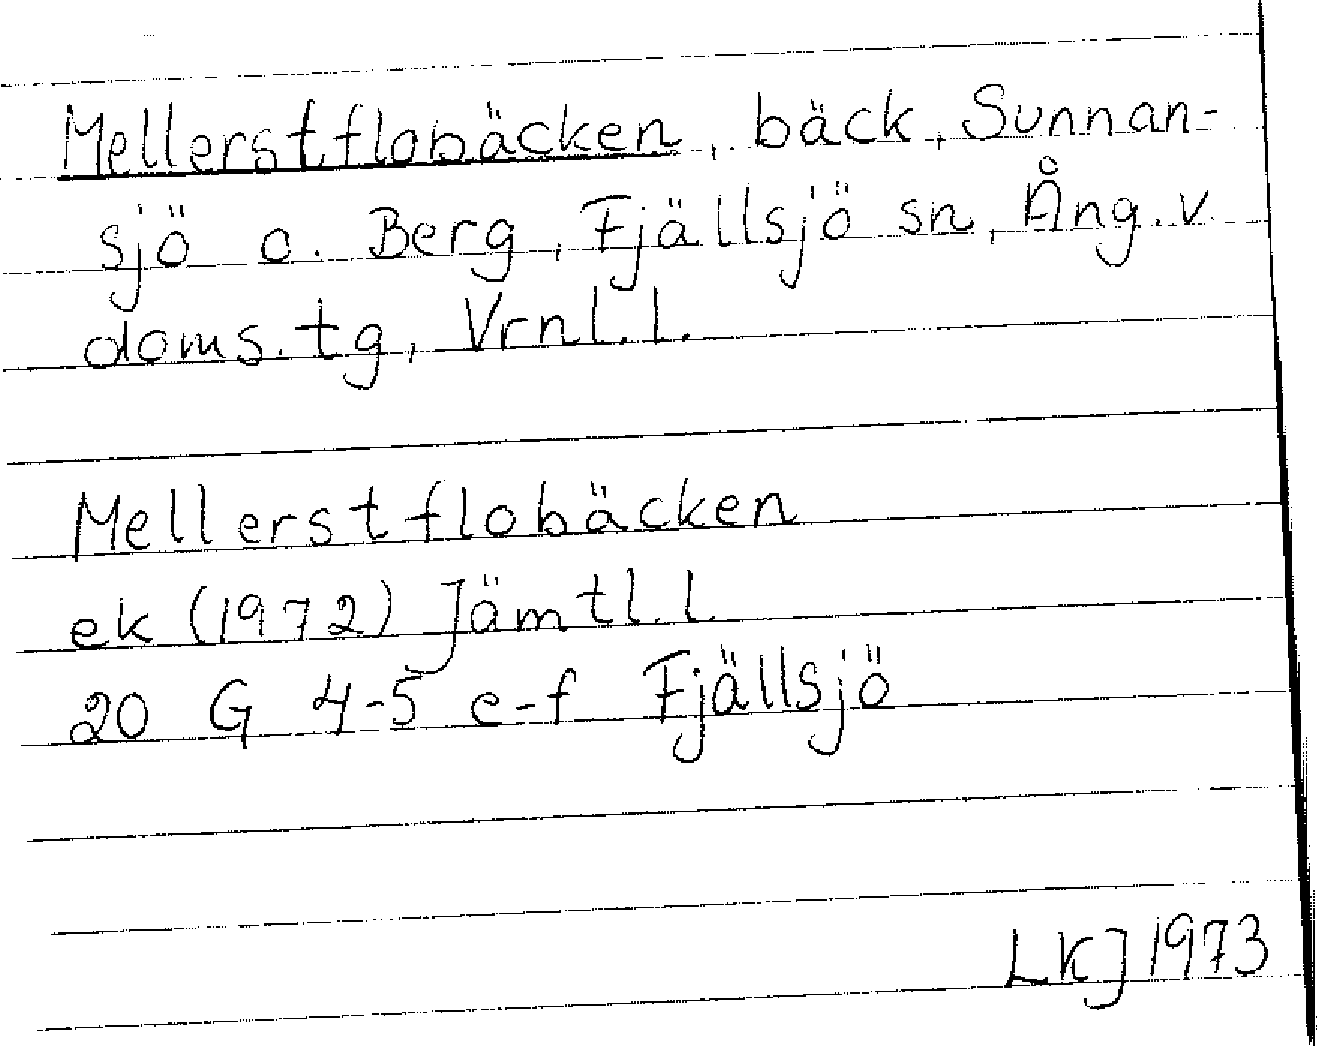 Mellerstflobäcken, bäck, Sunnan-
sjö o. Berg, Fjällsjö sn, Ång. v.
doms. tg, Vrnl. l.
Mellerstflobäcken
ek (1972) Jämtl. l.
20 G 4-5 e-f Fjällsjö
LKJ 1973